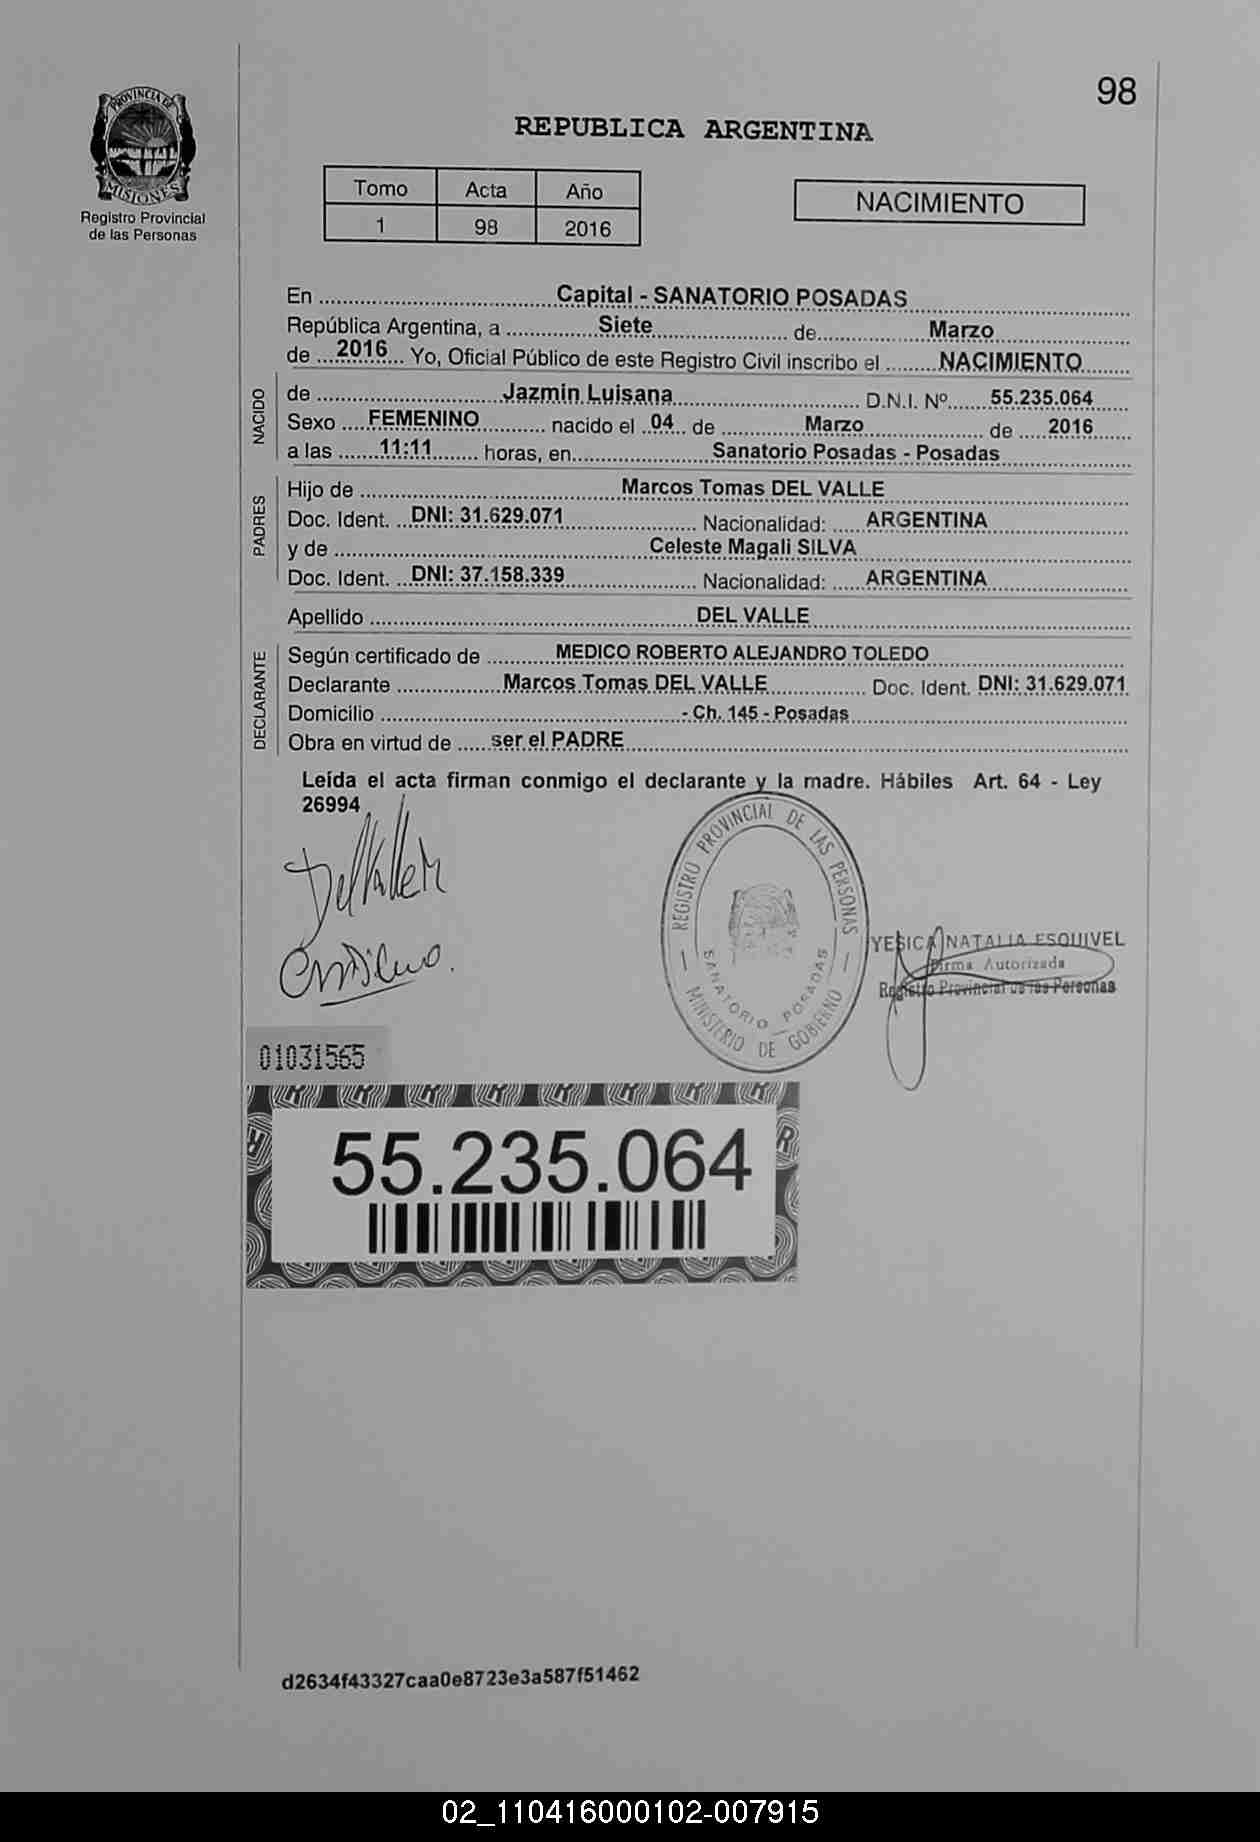 98
PROVINCIA DE
MISIONES
Registro Provincial
de las Personas
REPUBLICA ARGENTINA
Tomo Acta Año
1 98 2016
NACIMIENTO
En Capital - SANATORIO POSADAS
República Argentina, a Siete de Marzo
de 2016 Yo, Oficial Público de este Registro Civil inscribo el NACIMIENTO
NACIDO
de Jazmin Luisana D.N.I. Nº 55.235.064
Sexo FEMENINO nacido el 04 de Marzo de 2016
a las 11:11 horas, en Sanatorio Posadas - Posadas
PADRES
Hijo de Marcos Tomas DEL VALLE
Doc. Ident. DNI: 31.629.071 Nacionalidad: ARGENTINA
y de Celeste Magali SILVA
Doc. Ident. DNI: 37.158.339 Nacionalidad: ARGENTINA
Apellido DEL VALLE
DECLARANTE
Según certificado de MEDICO ROBERTO ALEJANDRO TOLEDO
Declarante Marcos Tomas DEL VALLE Doc. Ident. DNI: 31.629.071
Domicilio - Ch. 145 - Posadas
Obra en virtud de ser el PADRE
Leída el acta firman conmigo el declarante y la madre. Hábiles Art. 64 - Ley
26994
REGISTRO PROVINCIAL DE LAS PERSONAS
SANATORIO POSADAS
MINISTERIO DE GOBIERNO
YESICA NATALIA ESQUIVEL
Firma Autorizada
Registro Provincial de las Personas
01031565
55.235.064
d2634f43327caa0e8723e3a587f51462
02_110416000102-007915